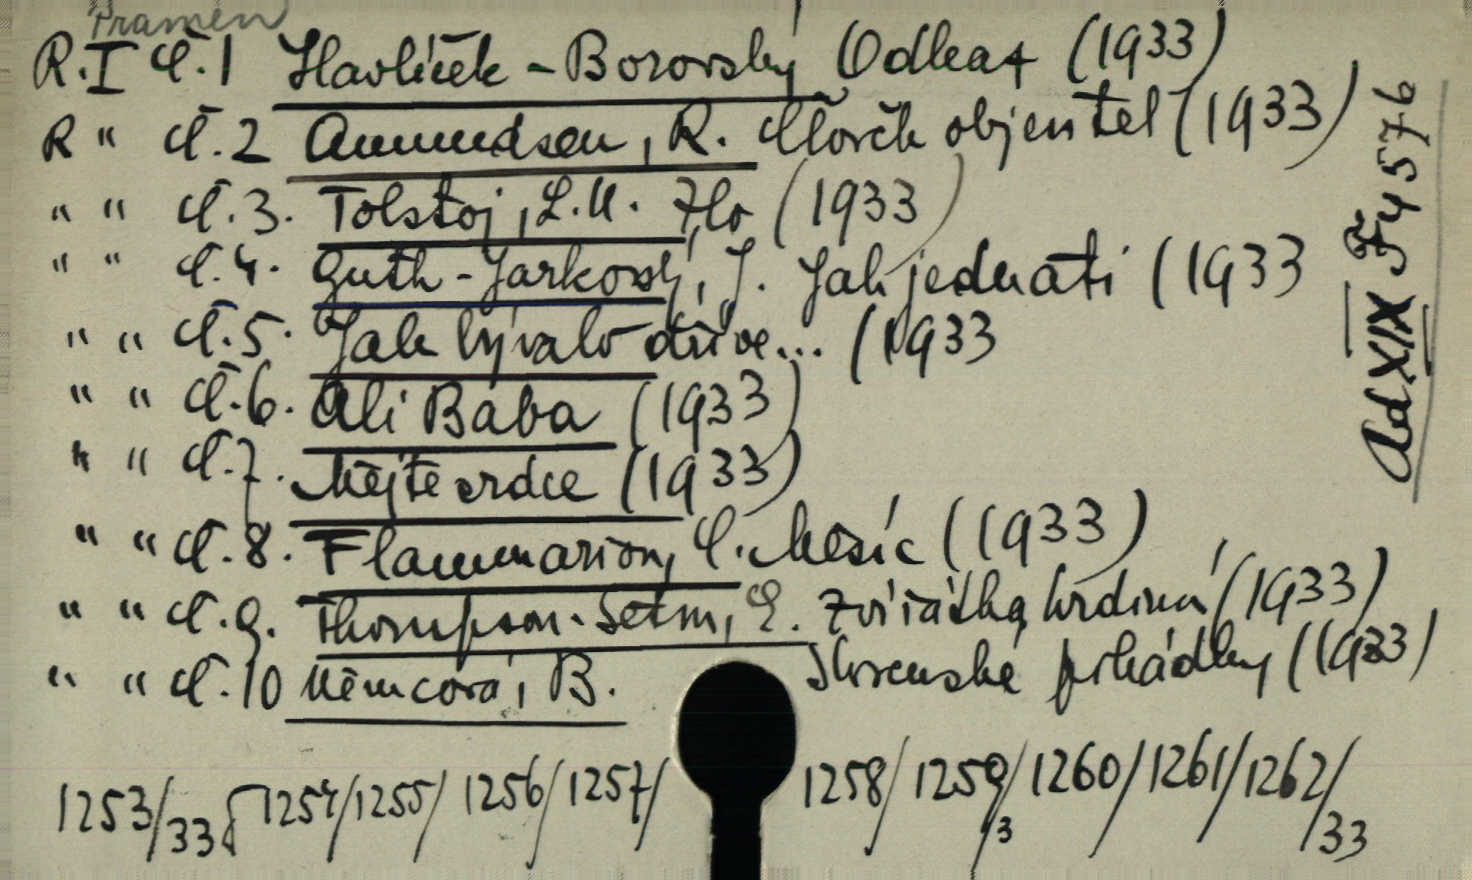 Pramen
R. I č. 1 Havlíček-Borovský Odkaz (1933)
R " č. 2 Amundsen, R. Člověk objevitel (1933)
" " č. 3. Tolstoj, L.N. Zlo (1933)
" " č. 4. Guth-Jarkovský, J. Jak jednati (1933
" " č. 5. Jak bývalo dříve... (1933
" " č. 6. Ali Baba (1933)
" " č. 7. Mějte srdce (1933)
" " č. 8. Flammarion, C. Měsíc (1933)
" " č. 9. Thompson-Setm, E. Zvířátka hrdinná (1933)
" " č. 10 Němcová, B. Slovenské pohádky (1933)
1253/33 1254/1255/ 1256/1257/ 1258/ 1259/3 1260/1261/1262/33
Ad XIX F 4576